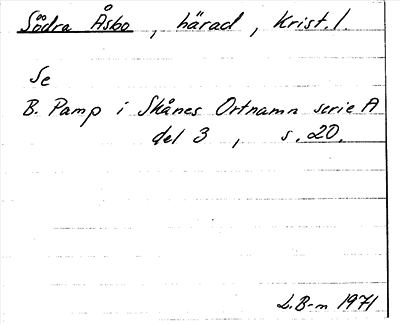 Södra Åsbo, härad, Krist.l.
Se
B. Pamp i Skånes Ortnamn serie A
del 3, s. 20.
L.B-m 1971